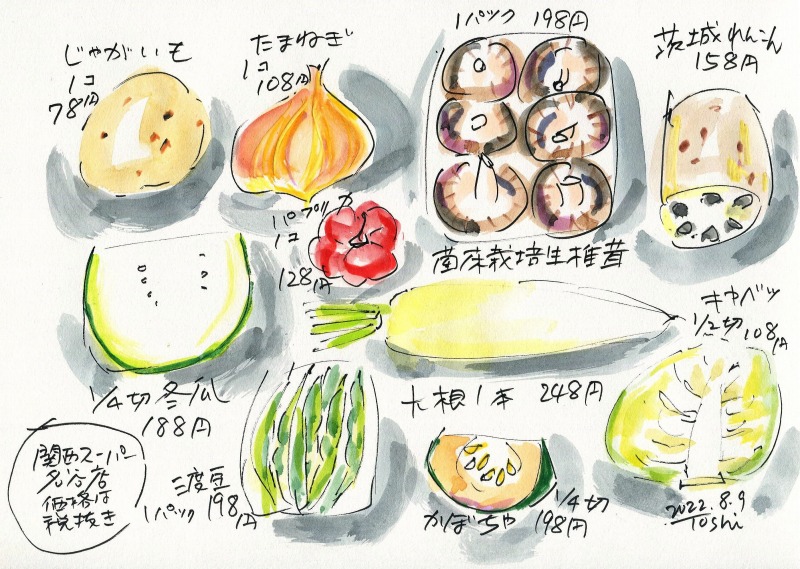 じゃがいも
1コ
78円
たまねぎ
1コ
108円
1パック 198円
菌床栽培生椎茸
茨城れんこん
158円
パプリカ
1コ
128円
1/4切冬瓜
188円
大根1本 248円
キャベツ
1/2切 108円
三度豆
1パック 198円
かぼちゃ
1/4切
198円
関西スーパー
名谷店
価格は
税抜き
2022.8.9
Toshi